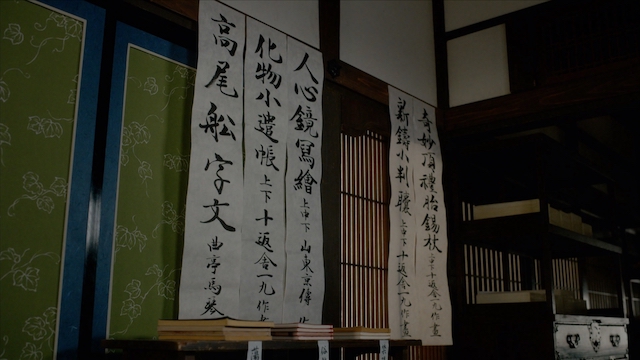 人心鏡寫繪 上中下 山東京傳 作
化物小遣帳 上下 十返舎一九作 畫
高尾舩字文 曲亭馬琴
奇妙頂禮胎錫杖 上中下 十返舎一九作畫
新鑄小判𩥇 上中下 十返舎一九作畫